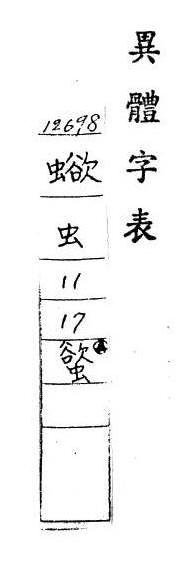 異體字表
12698
虫
11
17